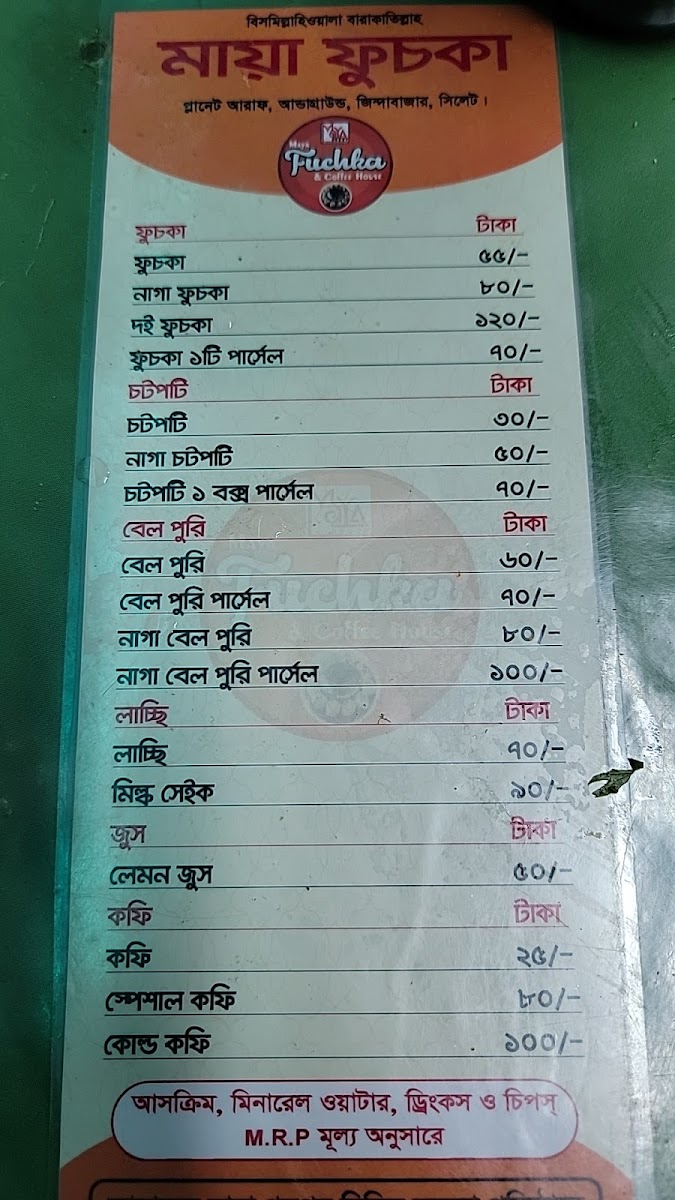 বিসমিল্লাহিওয়ালা বারাকাতিল্লাহ
মায়া ফুচকা
প্লানেট আরাফ, আন্ডাগ্রাউন্ড, জিন্দাবাজার, সিলেট।
Maya
Fuchka
& Coffee House
ফুচকা টাকা
ফুচকা ৫৫/-
নাগা ফুচকা ৮০/-
দই ফুচকা ১২০/-
ফুচকা ১টি পার্সেল ৭০/-
চটপটি টাকা
চটপটি ৩০/-
নাগা চটপটি ৫০/-
চটপটি ১ বক্স পার্সেল ৭০/-
বেল পুরি টাকা
বেল পুরি ৬০/-
বেল পুরি পার্সেল ৭০/-
নাগা বেল পুরি ৮০/-
নাগা বেল পুরি পার্সেল ১০০/-
লাচ্ছি টাকা
লাচ্ছি ৭০/-
মিল্ক সেইক ৯০/-
জুস টাকা
লেমন জুস ৫০/-
কফি টাকা
কফি ২৫/-
স্পেশাল কফি ৮০/-
কোল্ড কফি ১০০/-
আসক্রিম, মিনারেল ওয়াটার, ড্রিংকস ও চিপস্
M.R.P মূল্য অনুসারে